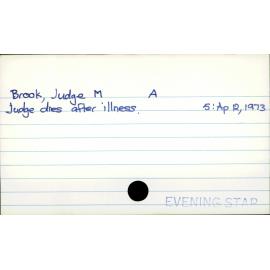 Brook, Judge M A
Judge dies after illness. 5: Ap 12, 1973
EVENING STAR